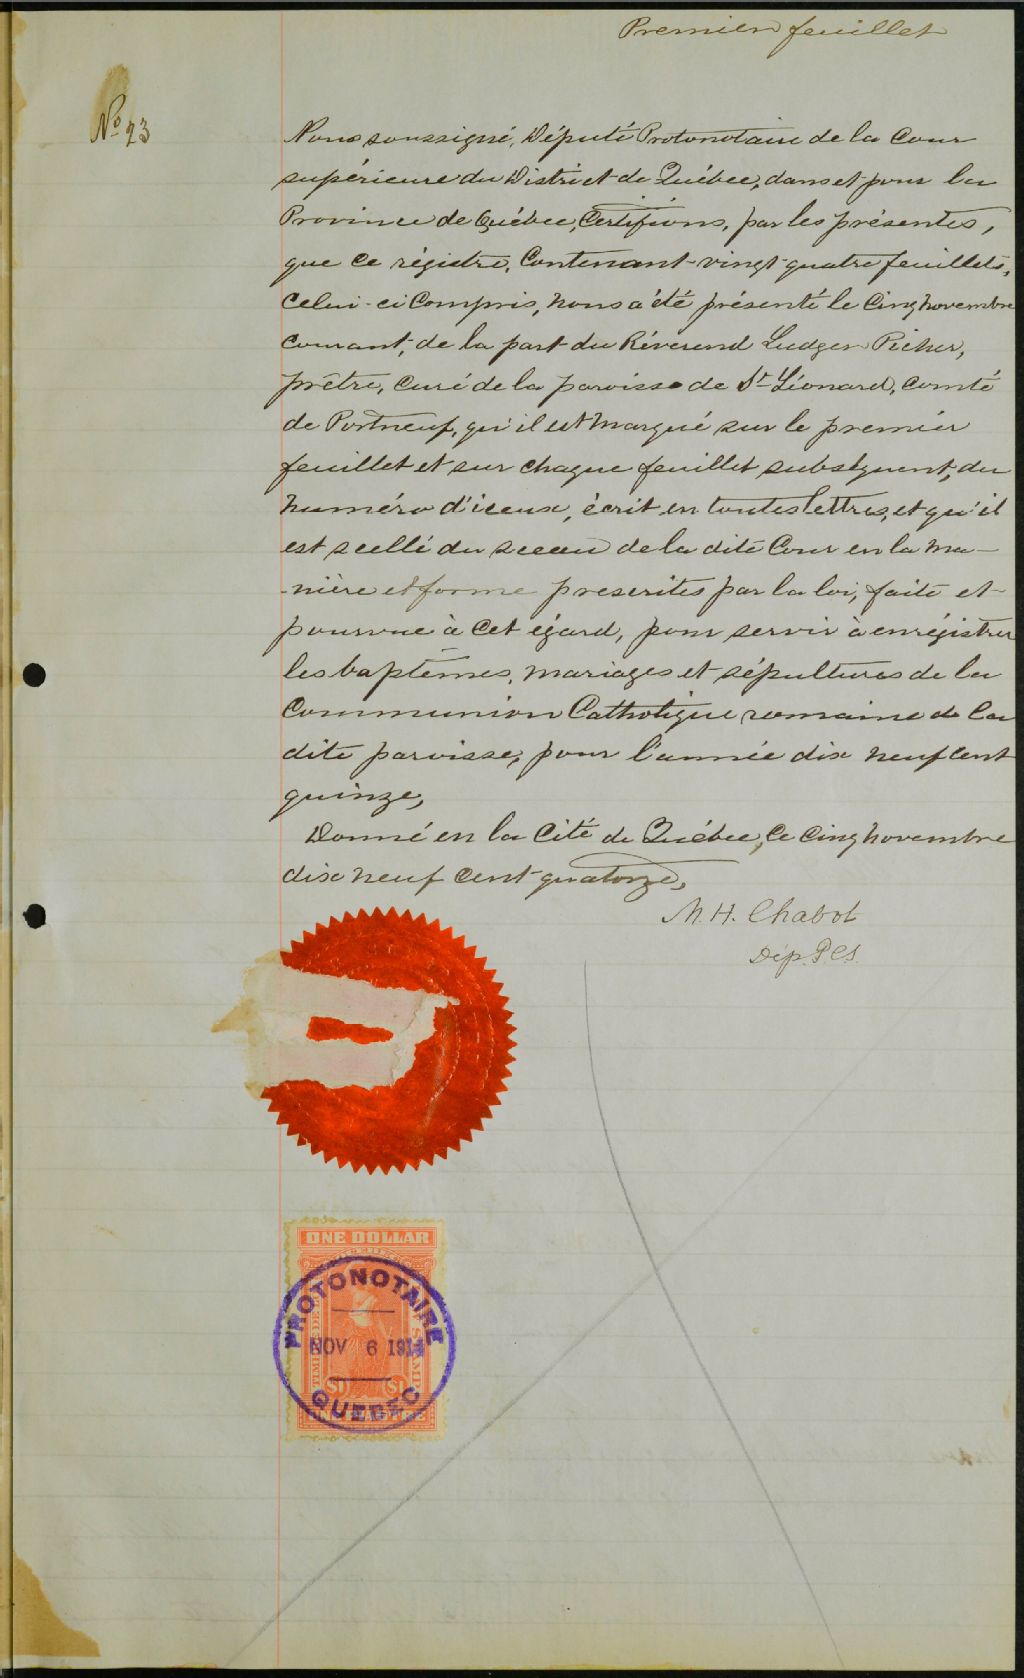 Premier feuillet
No 23
Nous soussigné, Député Protonotaire de la Cour
supérieure du District de Québec, dans et pour la
Province de Québec, Certifions, par les présentes,
que ce régistre, Contenant vingt-quatre feuillets,
Celui-ci Compris, nous a été présenté le Cinq novembre
Courant, de la part du Révérend Ludger Picher,
prêtre, Curé de la paroisse de St-Léonard, Comté
de Portneuf, qu'il est marqué sur le premier
feuillet et sur chaque feuillet subséquent, du
numéro d'iceux, écrit en toutes lettres, et qu'il
est scellé du sceau de la dite Cour en la ma-
-nière et forme prescrites par la loi, faite et
pourvue à cet égard, pour servir à enrégistrer
les baptêmes, mariages et sépultures de la
Communion Catholique romaine de la
dite paroisse, pour l'année dix neuf cent
quinze,
Donné en la Cité de Québec, Ce Cinq novembre
dix neuf cent quatorze,
M. H. Chabot
Dép. P.C.S.
ONE DOLLAR
PROTONOTAIRE
NOV 6 1914
$1 $1
QUEBEC